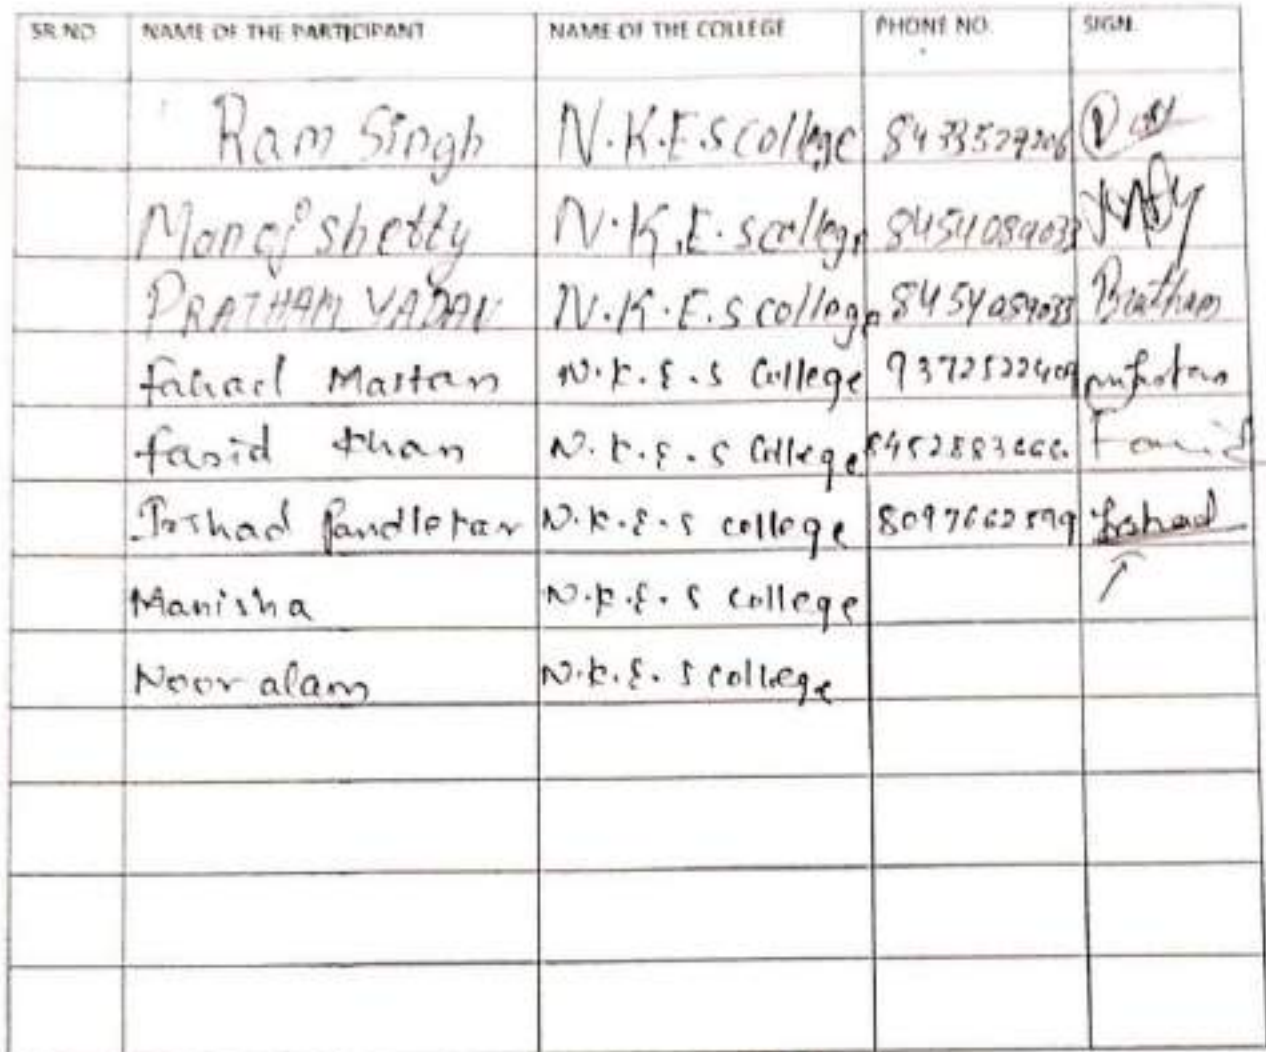 SR.NO NAME OF THE PARTICIPANT NAME OF THE COLLEGE PHONE NO. SIGN.
Ram Singh N.K.E.S college 8433527206
Manoj shetty N.K.E.S college 8454089033
PRATHAM YADAV N.K.E.S college 8454089033 Pratham
fahad Mastan N.K.E.S College 9372522409
farid khan N.K.E.S College Farid
Irshad Pandlekar N.K.E.S college 8097662599 Irshad
Manisha N.K.E.S college
Noor alam N.K.E.S college